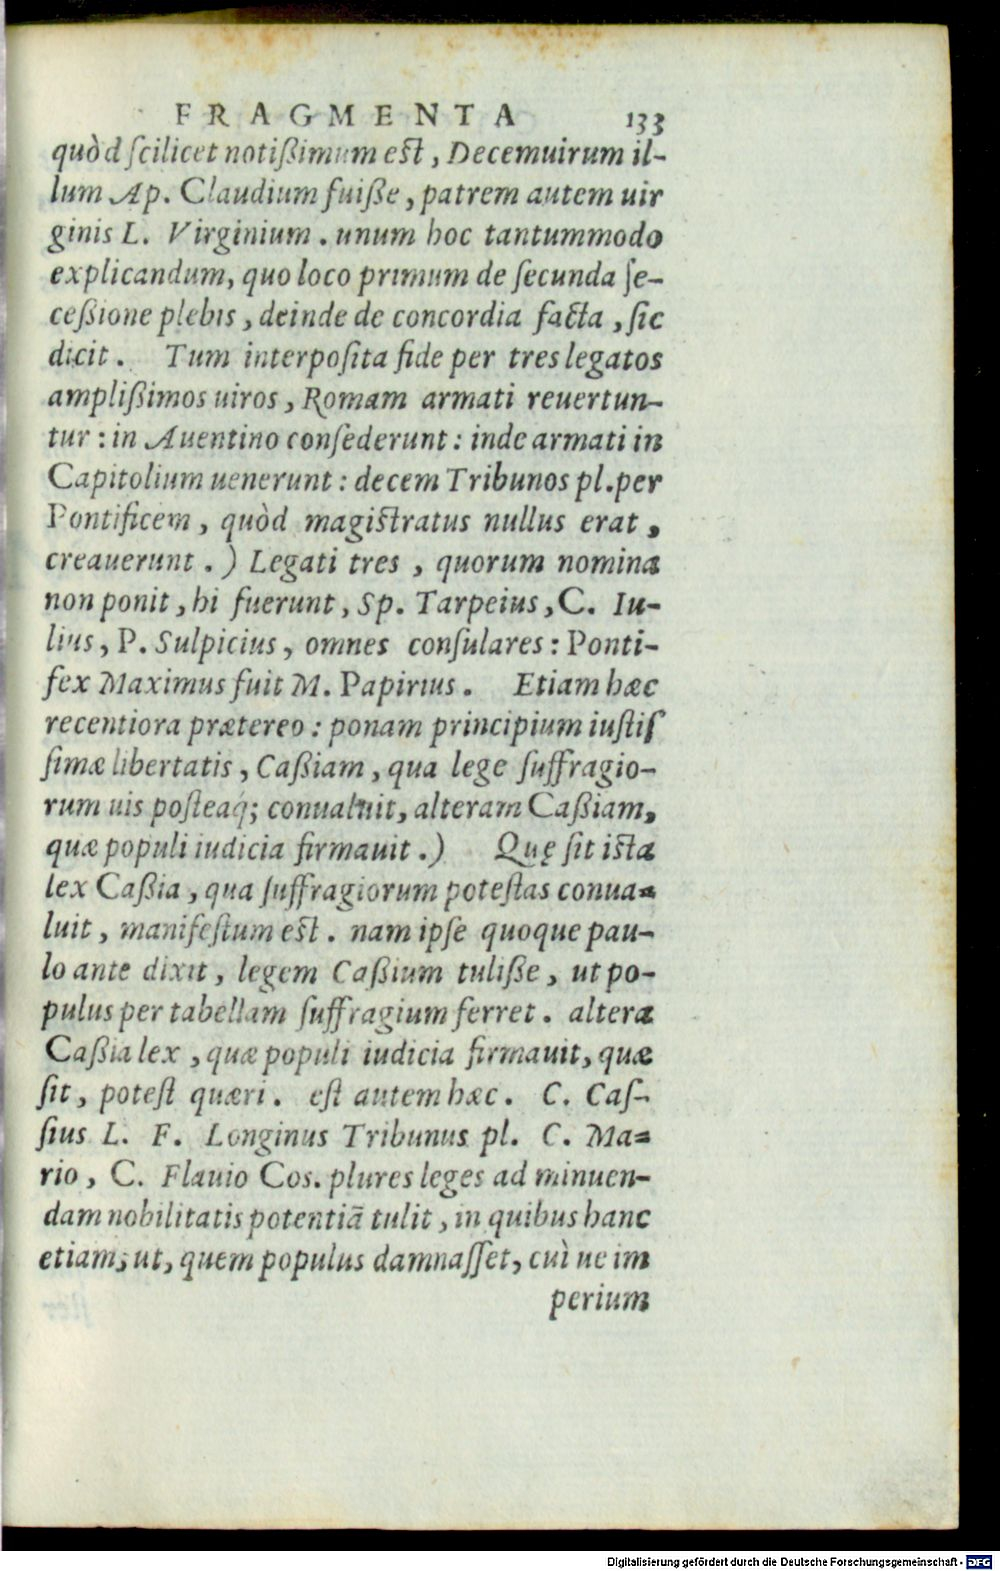 FRAGMENTA 133
quòd ſcilicet notißimum est, Decemuirum il-
lum Ap. Claudium fuiße, patrem autem uir
ginis L. Virginium. unum hoc tantummodo
explicandum, quo loco primum de ſecunda ſe-
ceßione plebis, deinde de concordia facta, ſic
dicit. Tum interpoſita fide per tres legatos
amplißimos uiros, Romam armati reuertun-
tur: in Auentino conſederunt: inde armati in
Capitolium uenerunt: decem Tribunos pl. per
Pontificem, quòd magistratus nullus erat,
creauerunt.) Legati tres, quorum nomina
non ponit, hi fuerunt, Sp. Tarpeius, C. Iu-
lius, P. Sulpicius, omnes conſulares: Ponti-
fex Maximus fuit M. Papirius. Etiam hæc
recentiora prætereo: ponam principium iuſtiſ
ſimæ libertatis, Caßiam, qua lege ſuffragio-
rum uis poſteaq́; conualuit, alteram Caßiam,
quæ populi iudicia firmauit.) Quę ſit ista
lex Caßia, qua ſuffragiorum poteſtas conua-
luit, manifeſtum est. nam ipſe quoque pau-
lo ante dixit, legem Caßium tuliße, ut po-
pulus per tabellam ſuffragium ferret. altera
Caßia lex, quæ populi iudicia firmauit, quæ
ſit, poteſt quæri. eſt autem hæc. C. Caſ-
ſius L. F. Longinus Tribunus pl. C. Ma-
rio, C. Flauio Cos. plures leges ad minuen-
dam nobilitatis potentiã tulit, in quibus hanc
etiam, ut, quem populus damnaſſet, cuì ue im
perium
Digitalisierung gefördert durch die Deutsche Forschungsgemeinschaft - DFG